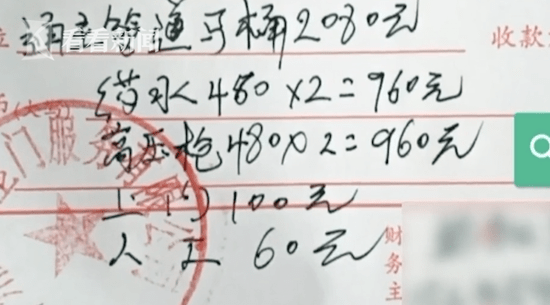 通主管通马桶2080元
看看新闻
收款
药水480×2=960元
高压枪480×2=960元
门服务
上门100元
人工60元
财务主